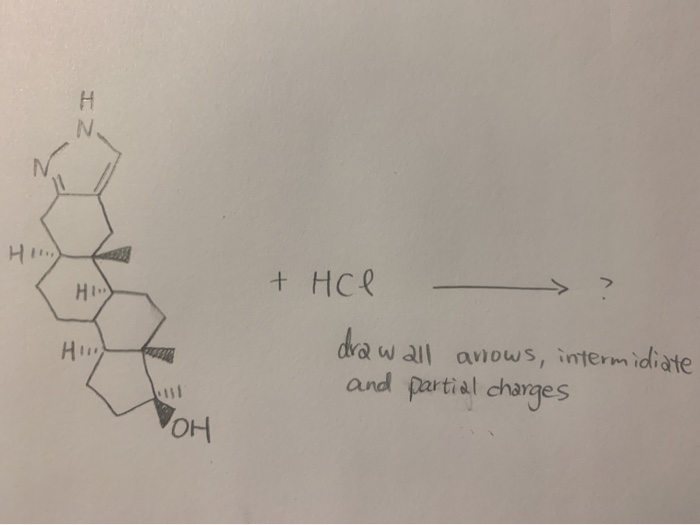 H
N
N
H
+ HCl ⟶ ?
H
H
draw all arrows, intermidiate
and partial charges
OH